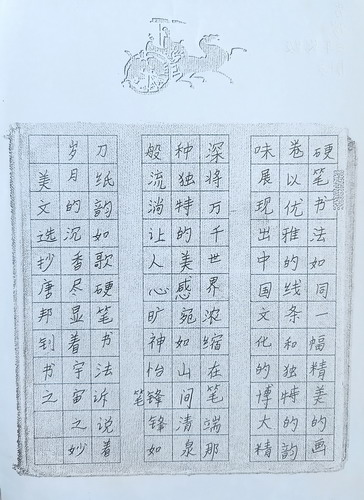 硬笔书法如同一幅精美的画
卷以优雅的线条和独特的韵
味展现出中国文化的博大精
深将万千世界浓缩在笔端那
种独特的美感宛如山间清泉
般流淌让人心旷神怡笔锋锋如
刀纸韵如歌硬笔书法诉说着
岁月的沉香尽显着宇宙之妙
美文选抄唐邦钊书之